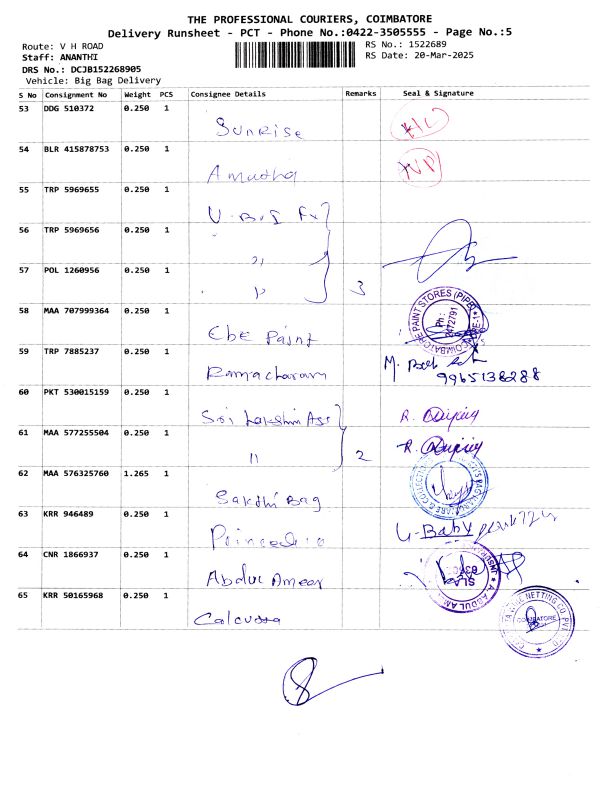 THE PROFESSIONAL COURIERS, COIMBATORE
Delivery Runsheet - PCT - Phone No.:0422-3505555 - Page No.:5
Route: V H ROAD
RS No.: 1522689
Staff: ANANTHI
RS Date: 20-Mar-2025
DRS No.: DCJB152268905
Vehicle: Big Bag Delivery
S No Consignment No Weight PCS Consignee Details Remarks Seal & Signature
53 DDG 510372 0.250 1
Sunrise
54 BLR 415878753 0.250 1
Amutha
55 TRP 5969655 0.250 1
56 TRP 5969656 0.250 1
"
57 POL 1260956 0.250 1
" 3
58 MAA 707999364 0.250 1
Cbe Paint
COIMBATORE PAINT STORES (PIPE)
Ph :
59 TRP 7885237 0.250 1
M.
9965138288
60 PKT 530015159 0.250 1
Sri Lakshmi Ass
R.
61 MAA 577255504 0.250 1
" 2
R.
62 MAA 576325760 1.265 1
Sakthi Bag
63 KRR 946489 0.250 1
Baby
64 CNR 1866937 0.250 1
Abdul Ameer
A. ABDUL AM
65 KRR 50165968 0.250 1
WIRE NETTING CO.
COIMBATORE